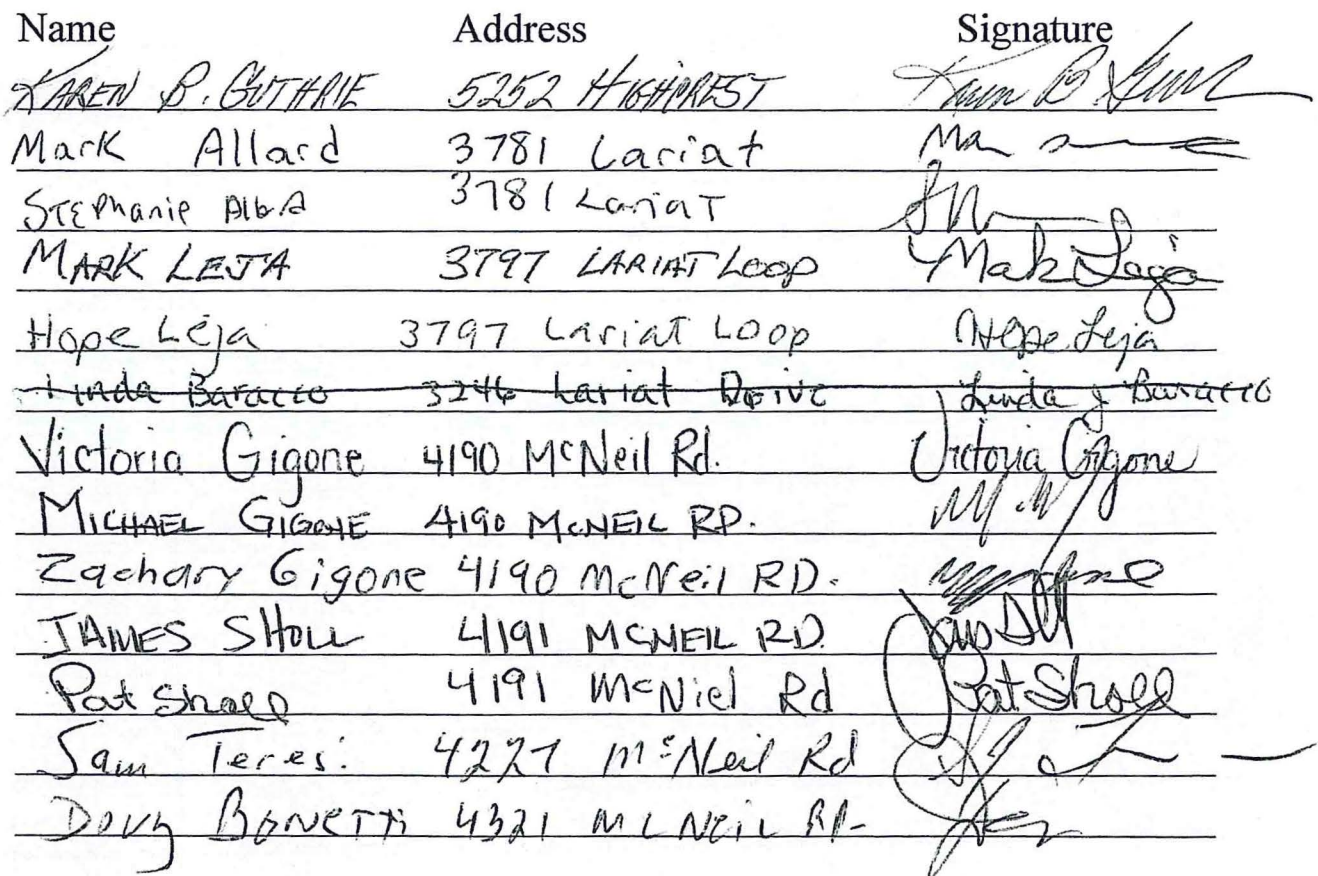 Name Address Signature
KAREN B. GUTHRIE 5252 HIGHCREST Karen B
Mark Allard 3781 Lariat
Stephanie 3781 Lariat
MARK LEJA 3797 LARIAT LOOP Mark Leja
Hope Leja 3797 Lariat Loop Hope Leja
Linda Baracco 3246 Lariat Drive Linda J Baracco
Victoria Gigone 4190 McNeil Rd. Victoria Gigone
MICHAEL GIGONE 4190 McNEIL RD.
Zachary Gigone 4190 McNeil RD.
JAMES SHOLL 4191 MCNEIL RD.
Pat Sholl 4191 McNiel Rd Pat Sholl
Sam Teresi 4227 McNeil Rd
Doug BONETTI 4321 McNEIL RD-